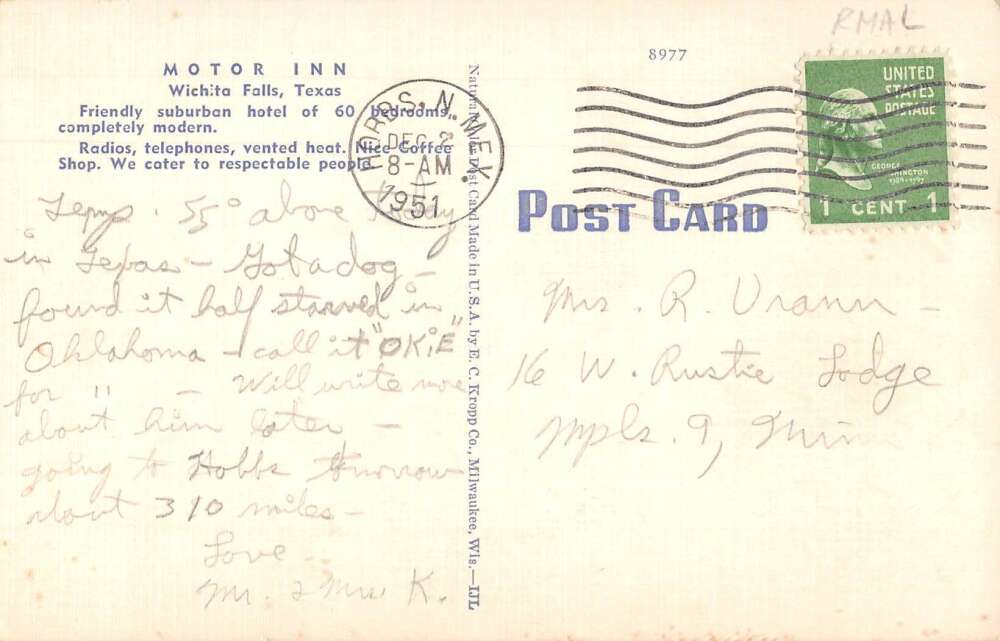 RMAL
8977
MOTOR INN
Wichita Falls, Texas
Friendly suburban hotel of 60 bedrooms,
completely modern.
Radios, telephones, vented heat. Nice Coffee
Shop. We cater to respectable people.
HOBBS, N. MEX.
DEC
8-AM
1951
UNITED
STATES
POSTAGE
GEORGE
WASHINGTON
1789-1797
1 CENT 1
POST CARD
Post Card Made in U.S.A. by E. C. Kropp Co., Milwaukee, Wis.—IJL
Temp. 55° above today
in Texas - Got a dog -
found it half starved in
Oklahoma - call it "OKiE"
for " - Will write more
about him later -
going to Hobbs tomorrow
about 310 miles -
Love -
Mr. & Mrs K.
Mrs. R. Vrann -
16 W. Rustic Lodge
Mpls. 9, Minn